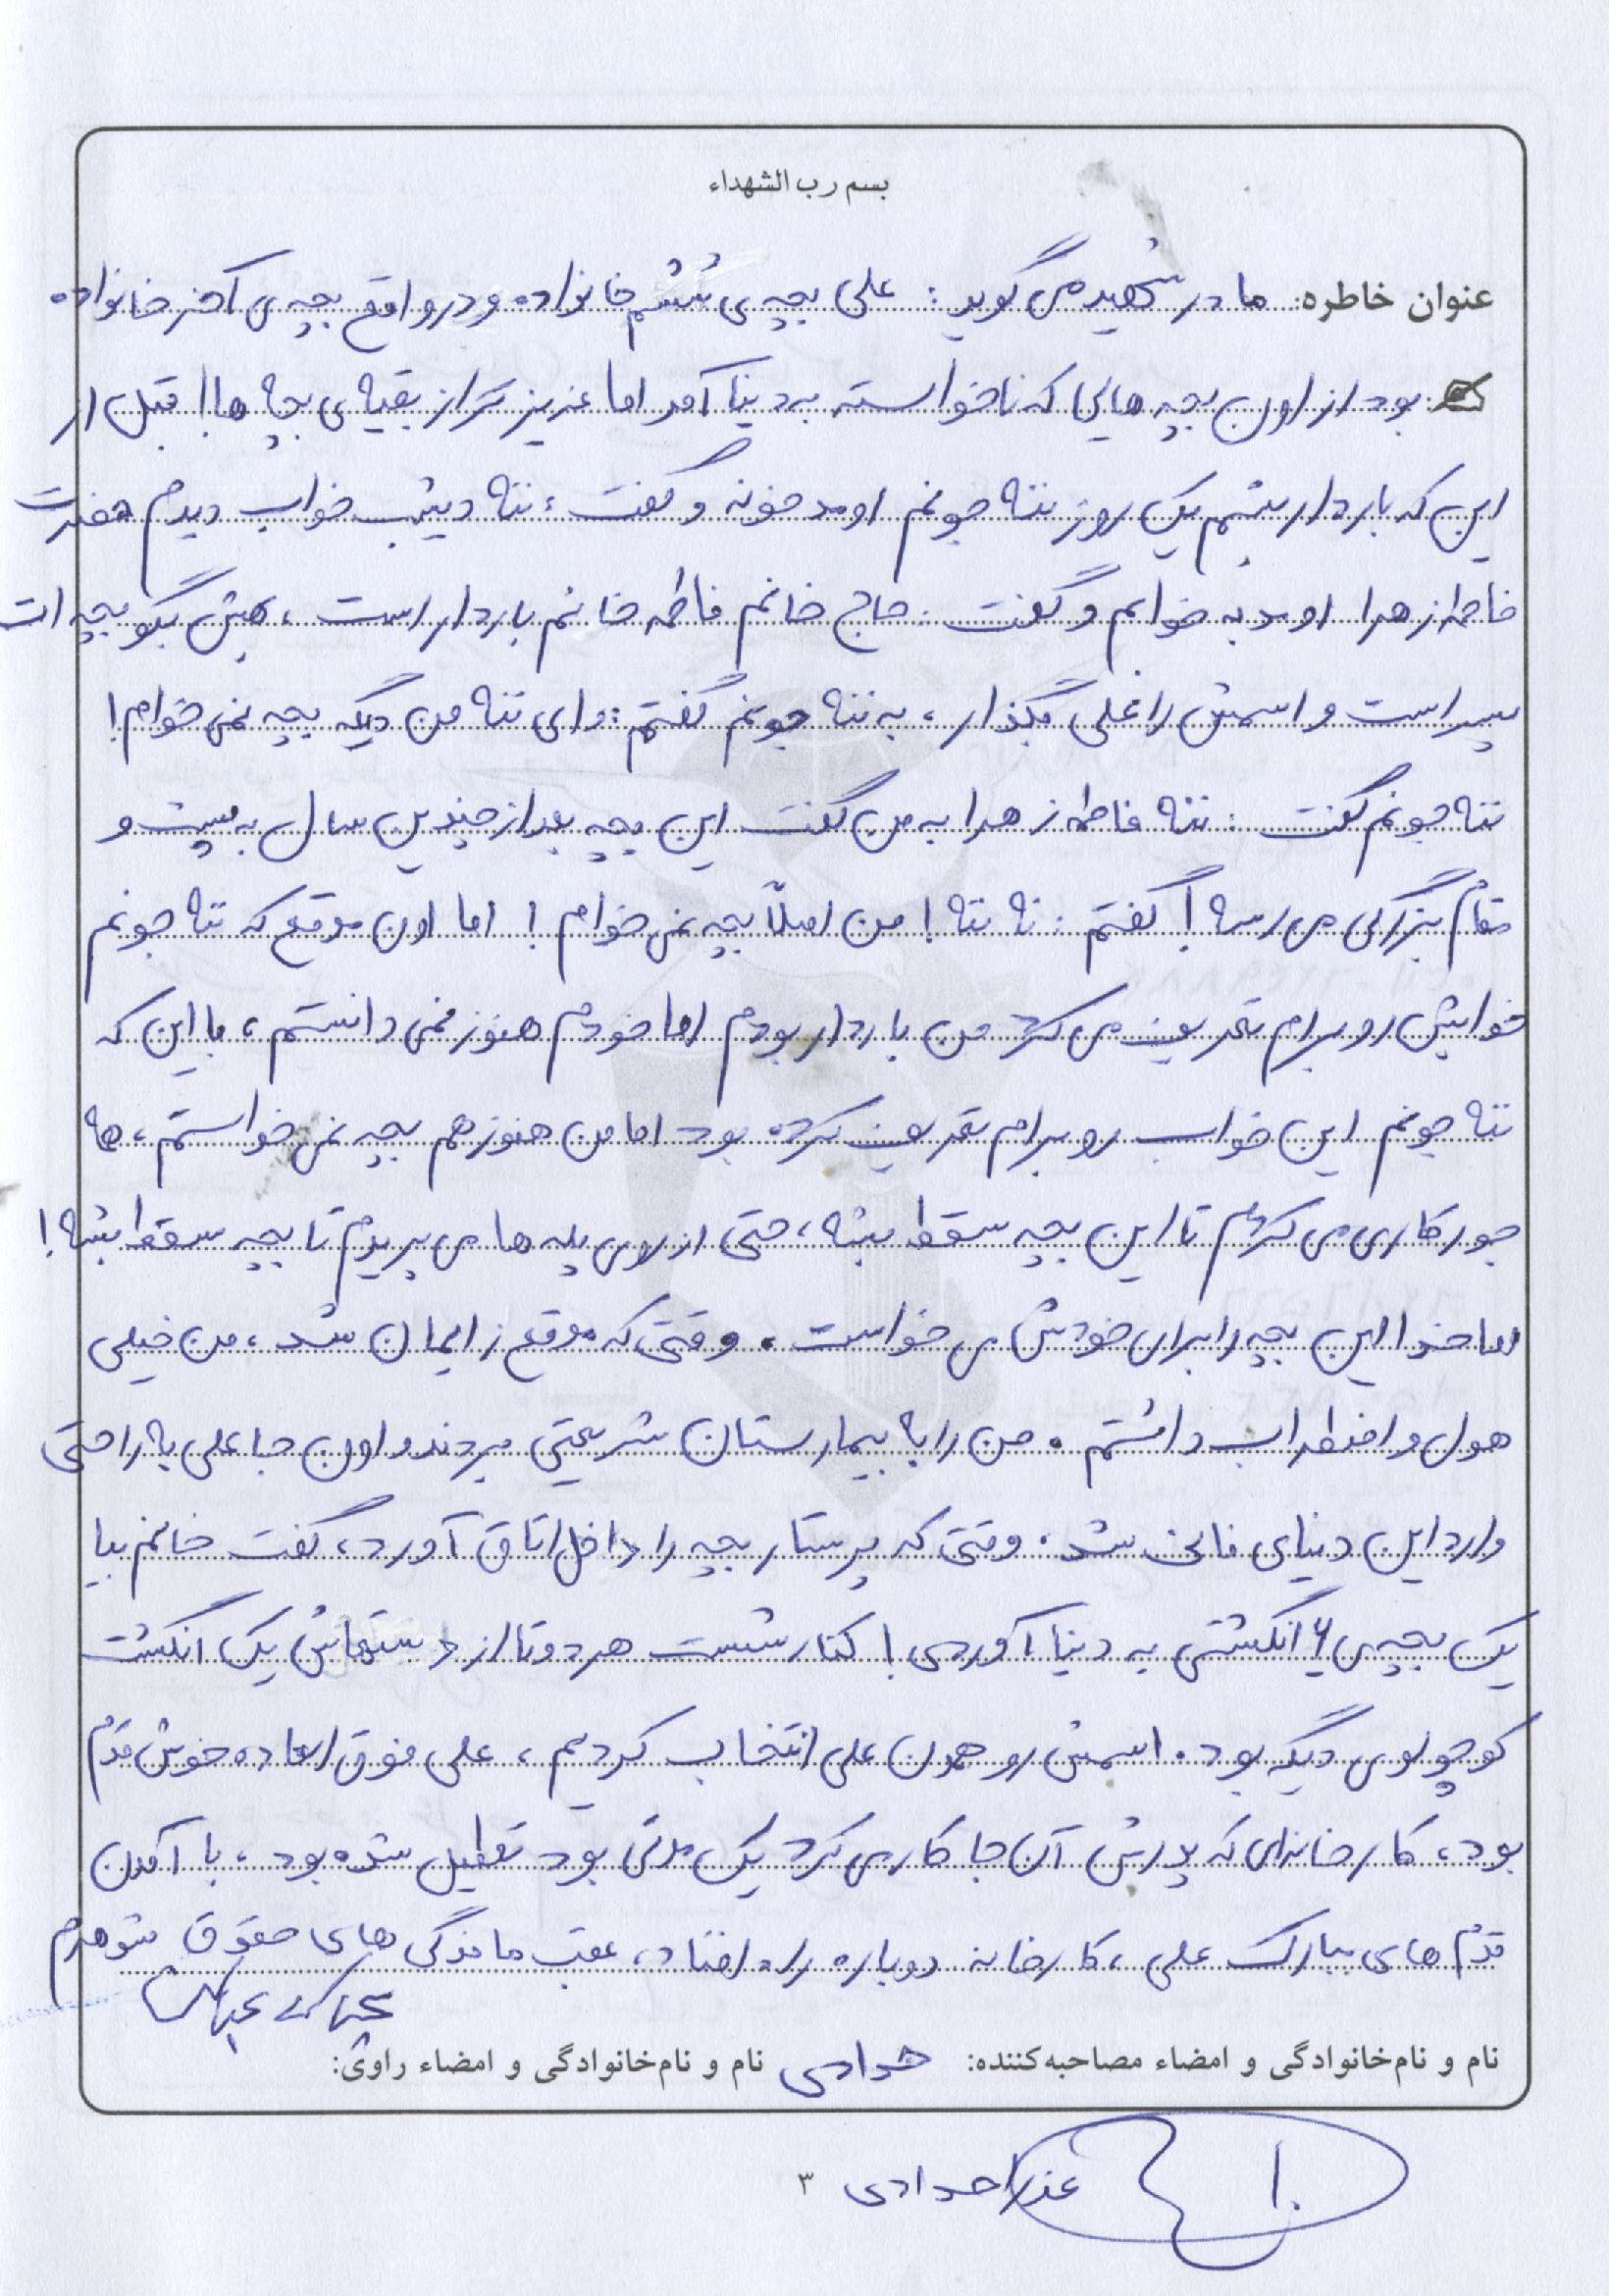 بسم رب الشهداء
عنوان خاطره: مادر شهید می گوید: علی بچه ی ششم خانواده و در واقع بچه ی آخر خانواده
بود از اون بچه هایی که ناخواسته به دنیا آمد اما عزیز تر از بقیه ی بچه ها! قبل از
این که باردار بشم یک روز ننه جونم اومد خونه و گفت: ننه دیشب خواب دیدم حضرت
فاطمه زهرا اومد به خوابم و گفت: حاج خانم فاطمه خانم باردار است، بهش بگو بچه ات
پسر است و اسمش را علی بگذار، به ننه جونم گفتم: وای ننه من دیگه بچه نمی خوام!
ننه جونم گفت: ننه فاطمه زهرا به من گفت این بچه بعد از چندین سال به پست و
مقام بزرگی می رسه! گفتم: نه ننه! من اصلاً بچه نمی خوام! اما اون موقع که ننه جونم
خوابش رو برام تعریف می کرد من باردار بودم اما خودم هنوز نمی دانستم، با این که
ننه جونم این خواب رو برام تعریف کرده بود اما من هنوز هم بچه نمی خواستم، همه
جور کاری می کردم تا این بچه سقط بشه، حتی از روی پله ها می پریدم تا بچه سقط بشه!
اما خدا این بچه را برای خودش می خواست. وقتی که موقع زایمان شد، من خیلی
هول و اضطراب داشتم. من را به بیمارستان شریعتی بردند و اون جا علی به راحتی
وارد این دنیای فانی شد. وقتی که پرستار بچه را داخل اتاق آورد، گفت خانم بیا
یک بچه ی ۶ انگشتی به دنیا آوردی! کنار شست هر دوتا از دستهاش یک انگشت
کوچولوی دیگه بود. اسمش رو همون علی انتخاب کردیم، علی فوق العاده خوش قدم
بود، کارخانه ای که پدرش آن جا کار می کرد یک مدتی بود تعطیل شده بود، با آمدن
قدم های مبارک علی، کارخانه دوباره راه افتاد، عقب ماندگی های حقوق شوهرم
نام و نام‌خانوادگی و امضاء مصاحبه‌کننده: حدادی نام و نام‌خانوادگی و امضاء راوی:
عذرا حدادی
۳